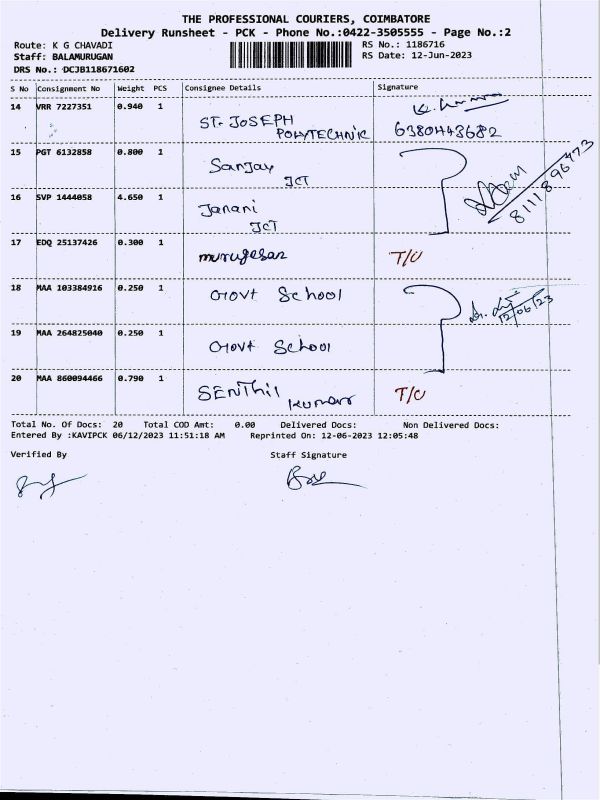 THE PROFESSIONAL COURIERS, COIMBATORE
Delivery Runsheet - PCK - Phone No.:0422-3505555 - Page No.:2
Route: K G CHAVADI RS No.: 1186716
Staff: BALAMURUGAN RS Date: 12-Jun-2023
DRS No.: DCJB118671602
S No Consignment No Weight PCS Consignee Details Signature
14 VRR 7227351 0.940 1
ST. JOSEPH
POLYTECHNIC 6380443682
15 PGT 6132858 0.800 1
Sanjay
JCT
8111896773
16 SVP 1444058 4.650 1
Janani
JCT
17 EDQ 25137426 0.300 1
murugesan T/O
18 MAA 103384916 0.250 1
Govt School
12/06/23
19 MAA 264825040 0.250 1
Govt School
20 MAA 860094466 0.790 1
SENTHil
Kumar T/O
Total No. Of Docs: 20 Total COD Amt: 0.00 Delivered Docs: Non Delivered Docs:
Entered By :KAVIPCK 06/12/2023 11:51:18 AM Reprinted On: 12-06-2023 12:05:48
Verified By Staff Signature